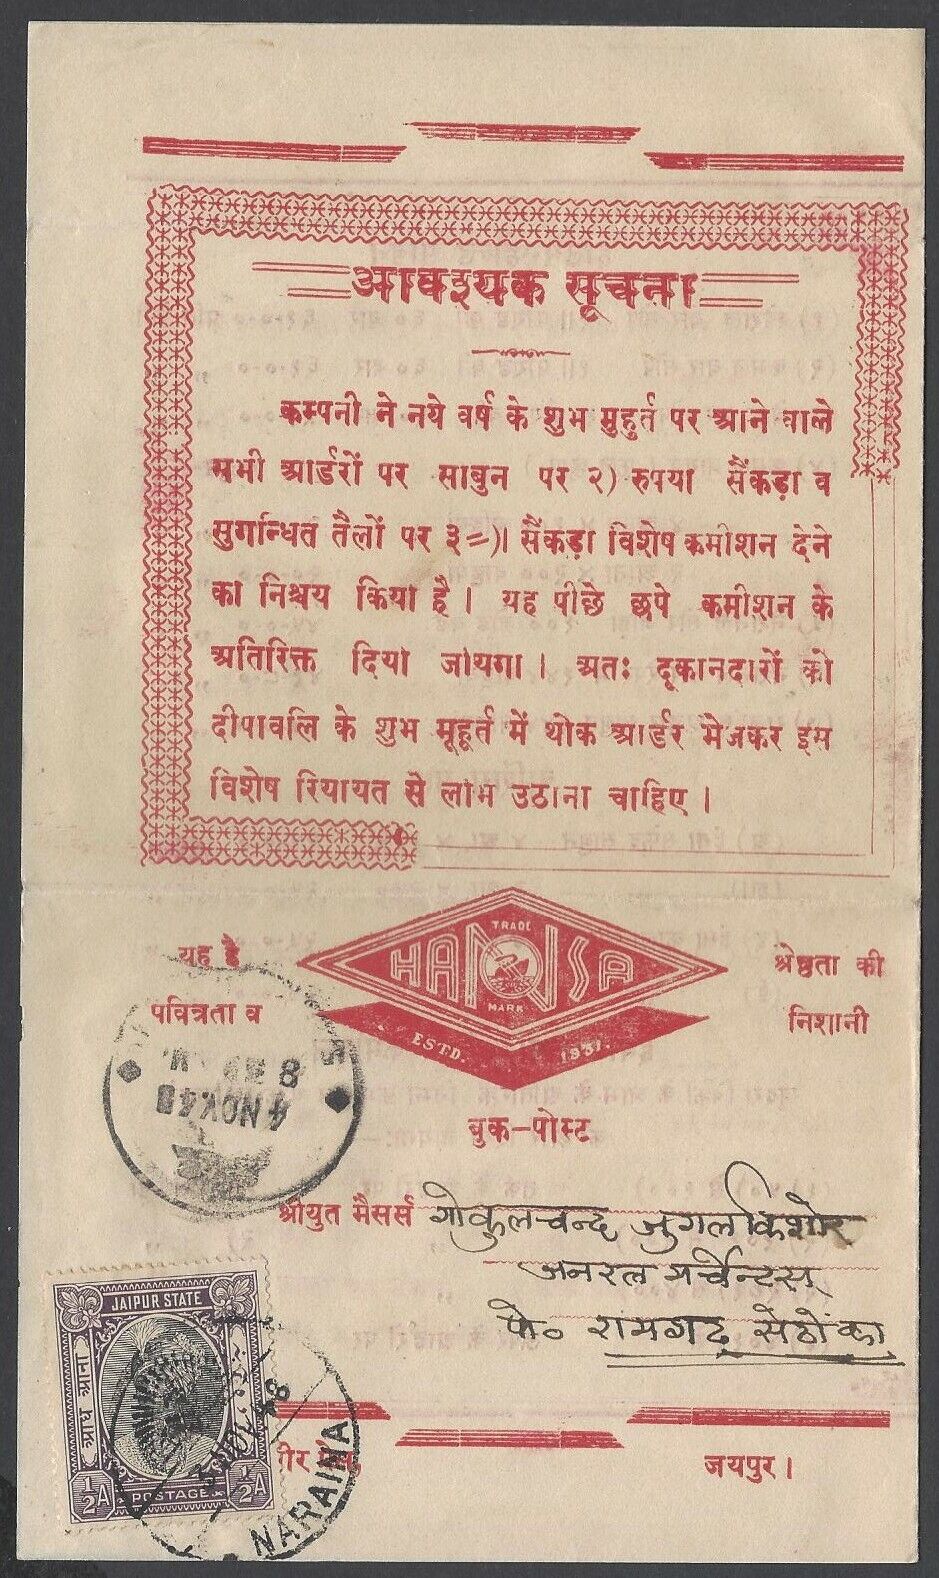 आवश्यक सूचना
कम्पनी ने नये वर्ष के शुभ मुहुर्त पर आने वाले
सभी आर्डरों पर साबुन पर २) रुपया सैंकड़ा व
सुगन्धित तैलों पर ३=)। सैंकड़ा विशेष कमीशन देने
का निश्चय किया है । यह पीछे छपे कमीशन के
अतिरिक्त दिया जायगा । अतः दूकानदारों को
दीपावलि के शुभ मूहूर्त में थोक आर्डर भेजकर इस
विशेष रियायत से लाभ उठाना चाहिए ।
यह है
पवित्रता व
TRADE
HANSA
MARK
ESTD. 1931.
श्रेष्ठता की
निशानी
8 30
4 NOV 48
बुक-पोस्ट
श्रीयुत मैसर्स गोकुलचन्द जुगलकिशोर
जनरल मर्चेन्टस्
पो० रामगढ़ सेठोंका
JAIPUR STATE
आध आना
½A POSTAGE ½A
NOV 48
NARAINA
जयपुर ।